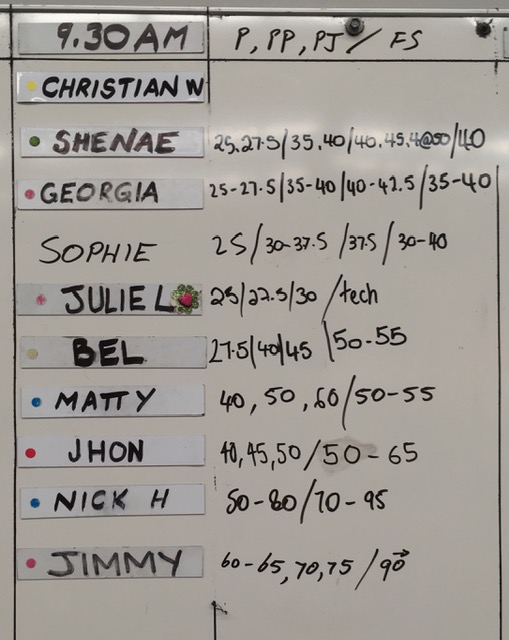 9.30AM P, PP, PJ / FS
CHRISTIAN W
SHENAE 25.27.5/35.40/40.45.4@50/40
GEORGIA 25-27.5/35-40/40-42.5/35-40
SOPHIE 25/30-37.5/37.5/30-40
JULIE L 25/27.5/30/tech
BEL 27.5/40/45 \50-55
MATTY 40, 50, 60/50-55
JHON 40,45,50/50-65
NICK H 50-80/70-95
JIMMY 60-65,70,75/90→